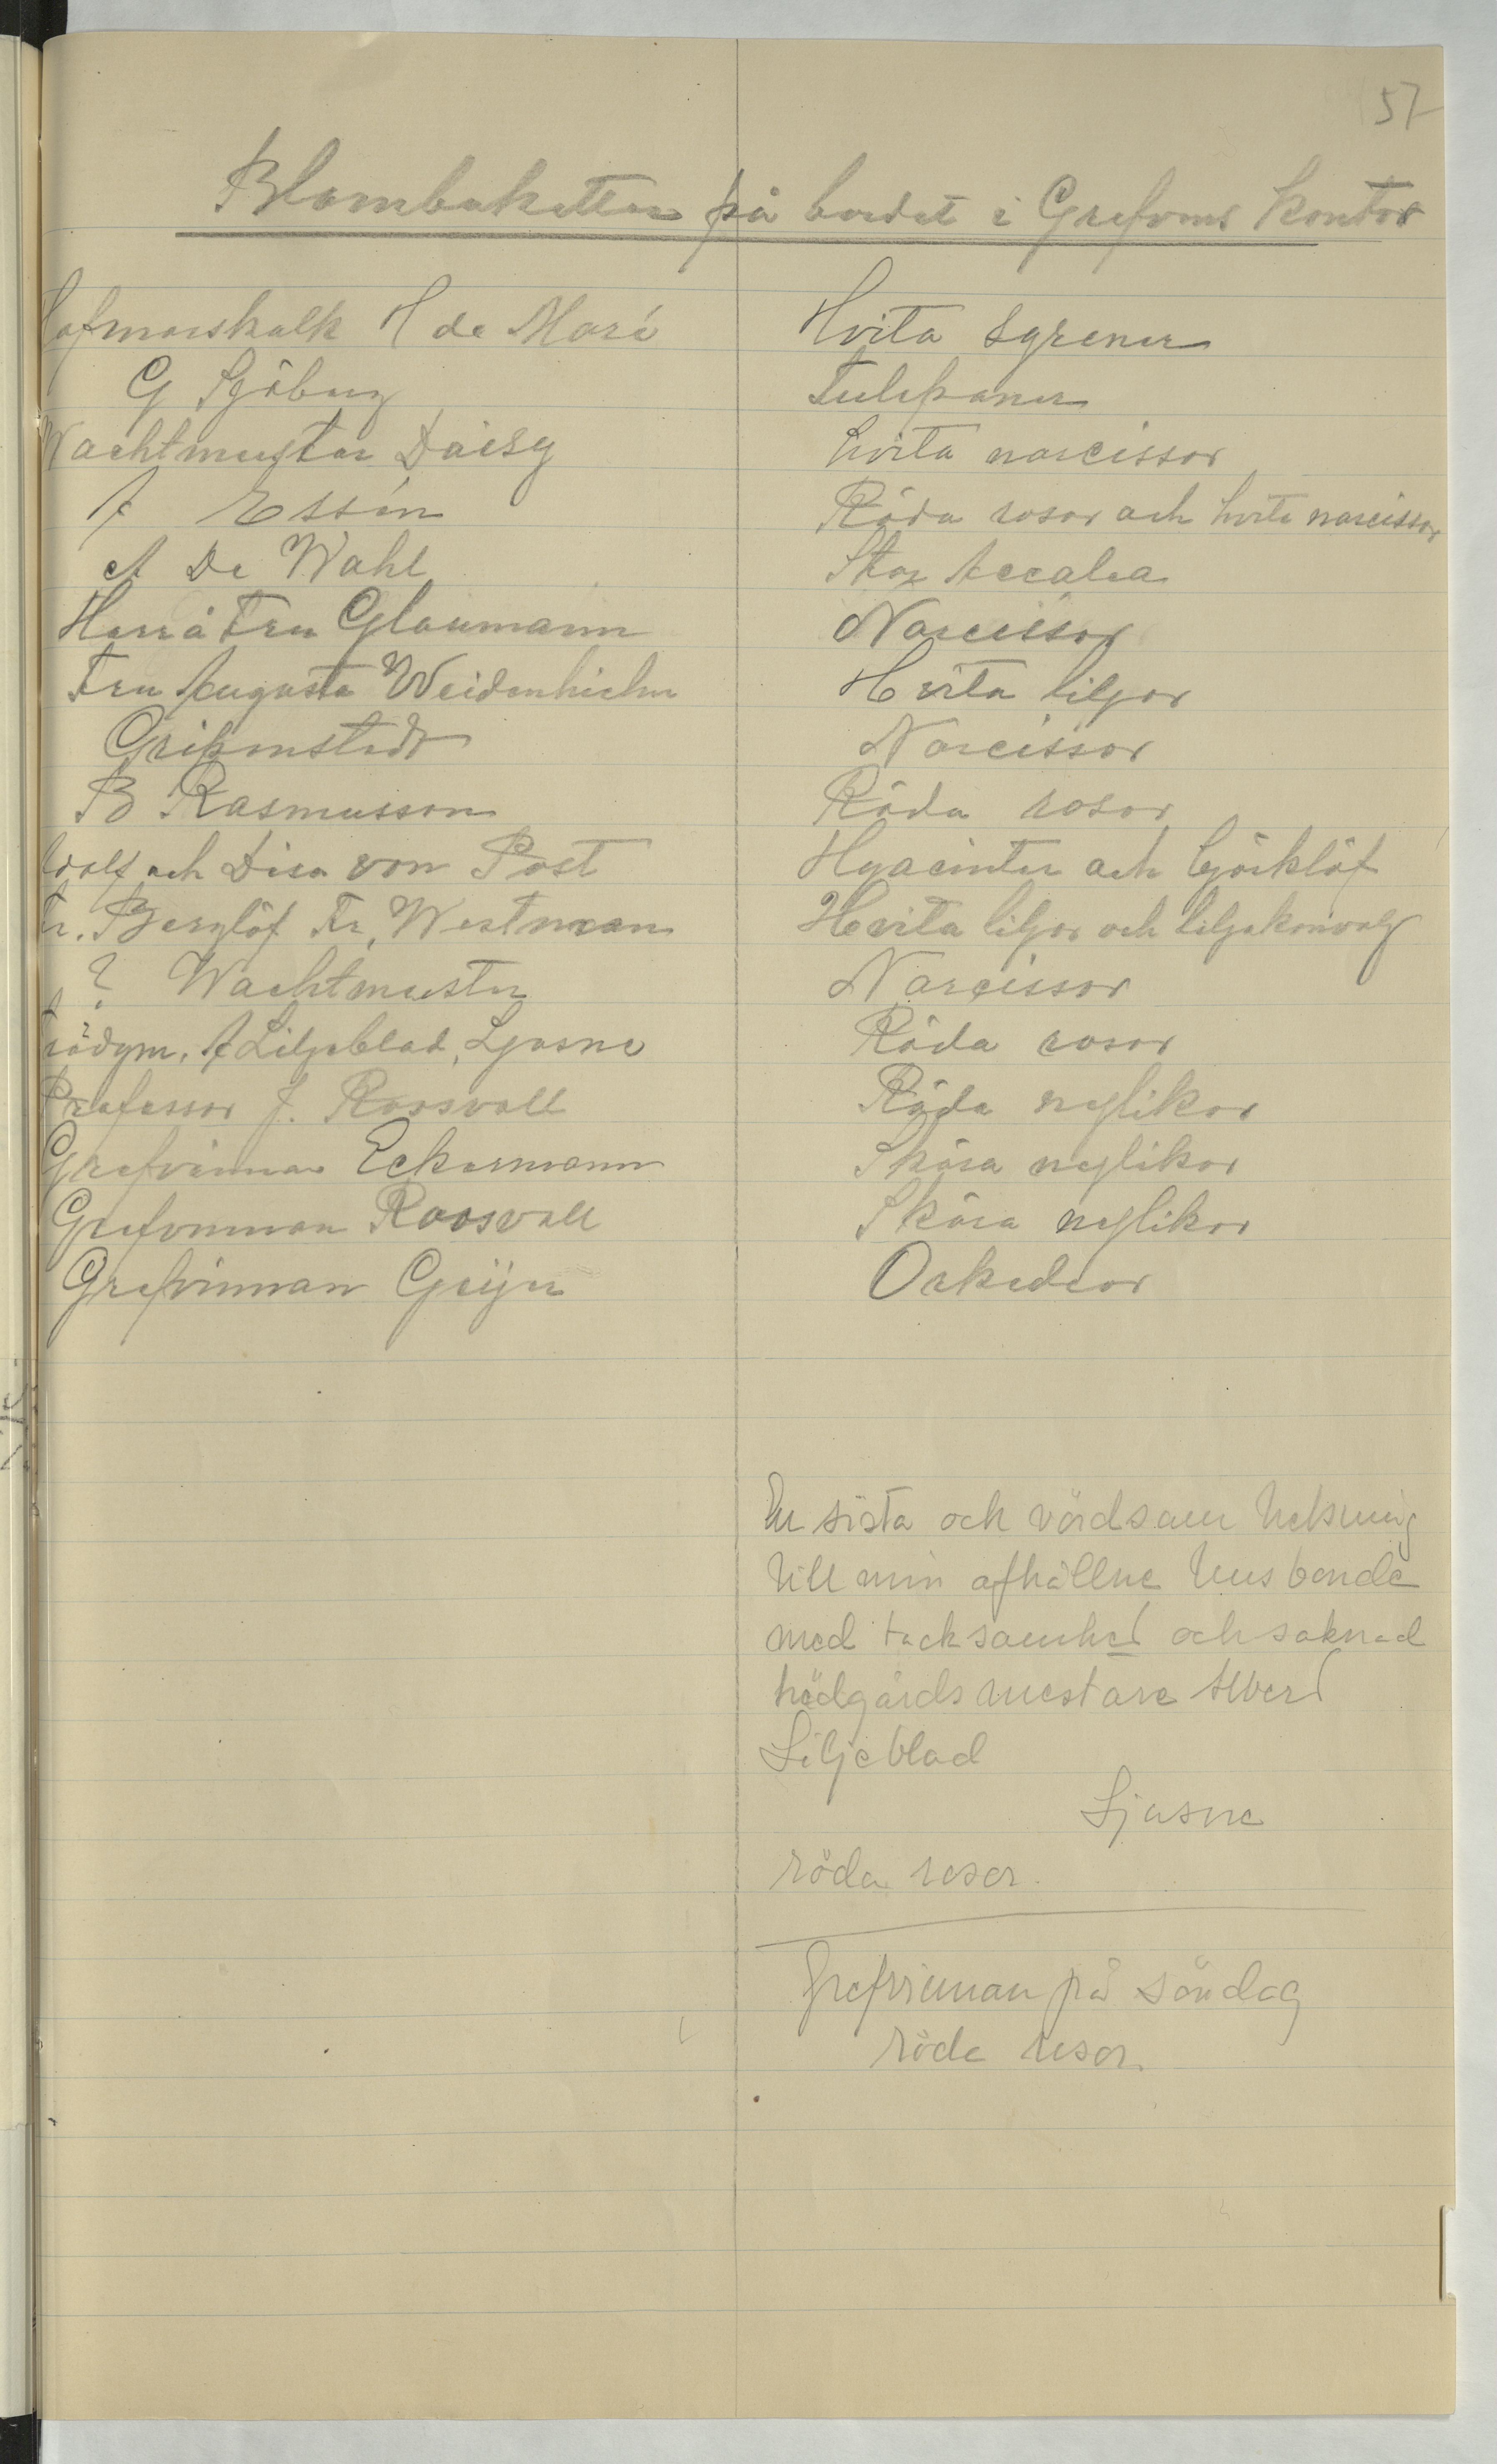 57
Blombuketter på bordet i Grefvens Kontor
Hofmarskalk H de Maré Hvita syrener
G Sjöberg Tulpaner
Wachtmeister Daisy hvita narcissor
A Essén Röda rosor och hvita narcissor
A De Wahl Stor Accalea
Herr å Fru Glaumann Narcissor
Fru Augusta Weidenhielm Hvita liljor
Gripenstedt Narcissor
B Rasmusson Röda rosor
och Disa von Post Hyacinter och björklöf
Fr. Berglöf Fr. Westman Hvita liljor och liljekonvalj
? Wachtmeister Narcissor
Trädgm. A Liljeblad, Ljusne Röda rosor
Professor J. Roosvall Röda neglikor
Grefvinnan Eckermann Skära neglikor
Grefvinnan Roosvall Skära neglikor
Grefvinnan Geijer Orkedeor
En sista och vördsam helsning
till min afhållne husbonde
med tacksamhet och saknad
trädgårdsmestare Albert
Liljeblad
Ljusne
röda rosor.
Grefvinnan på söndag
röda rosor.